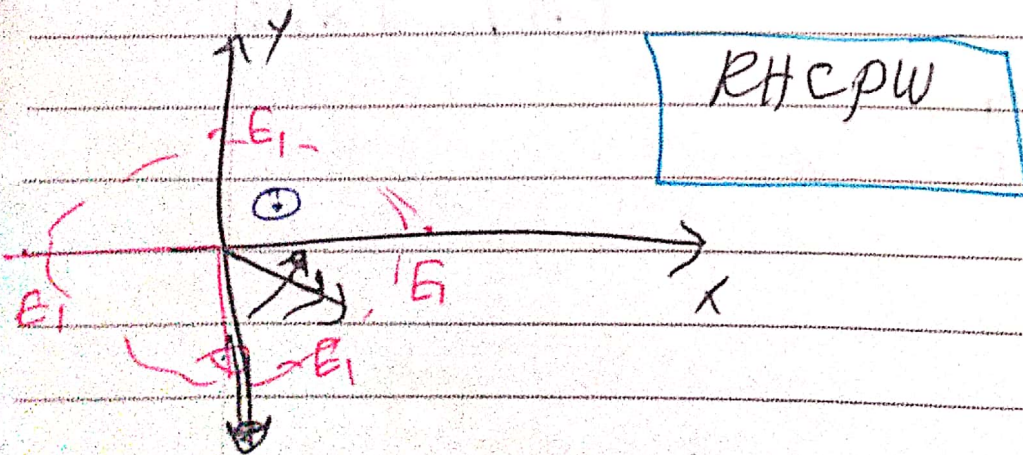 Y
RHCPW
E1
E1
E1
X
E1